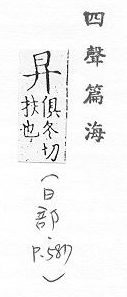 四聲篇海
昇
俱冬切
扶也
(日部 P.587)